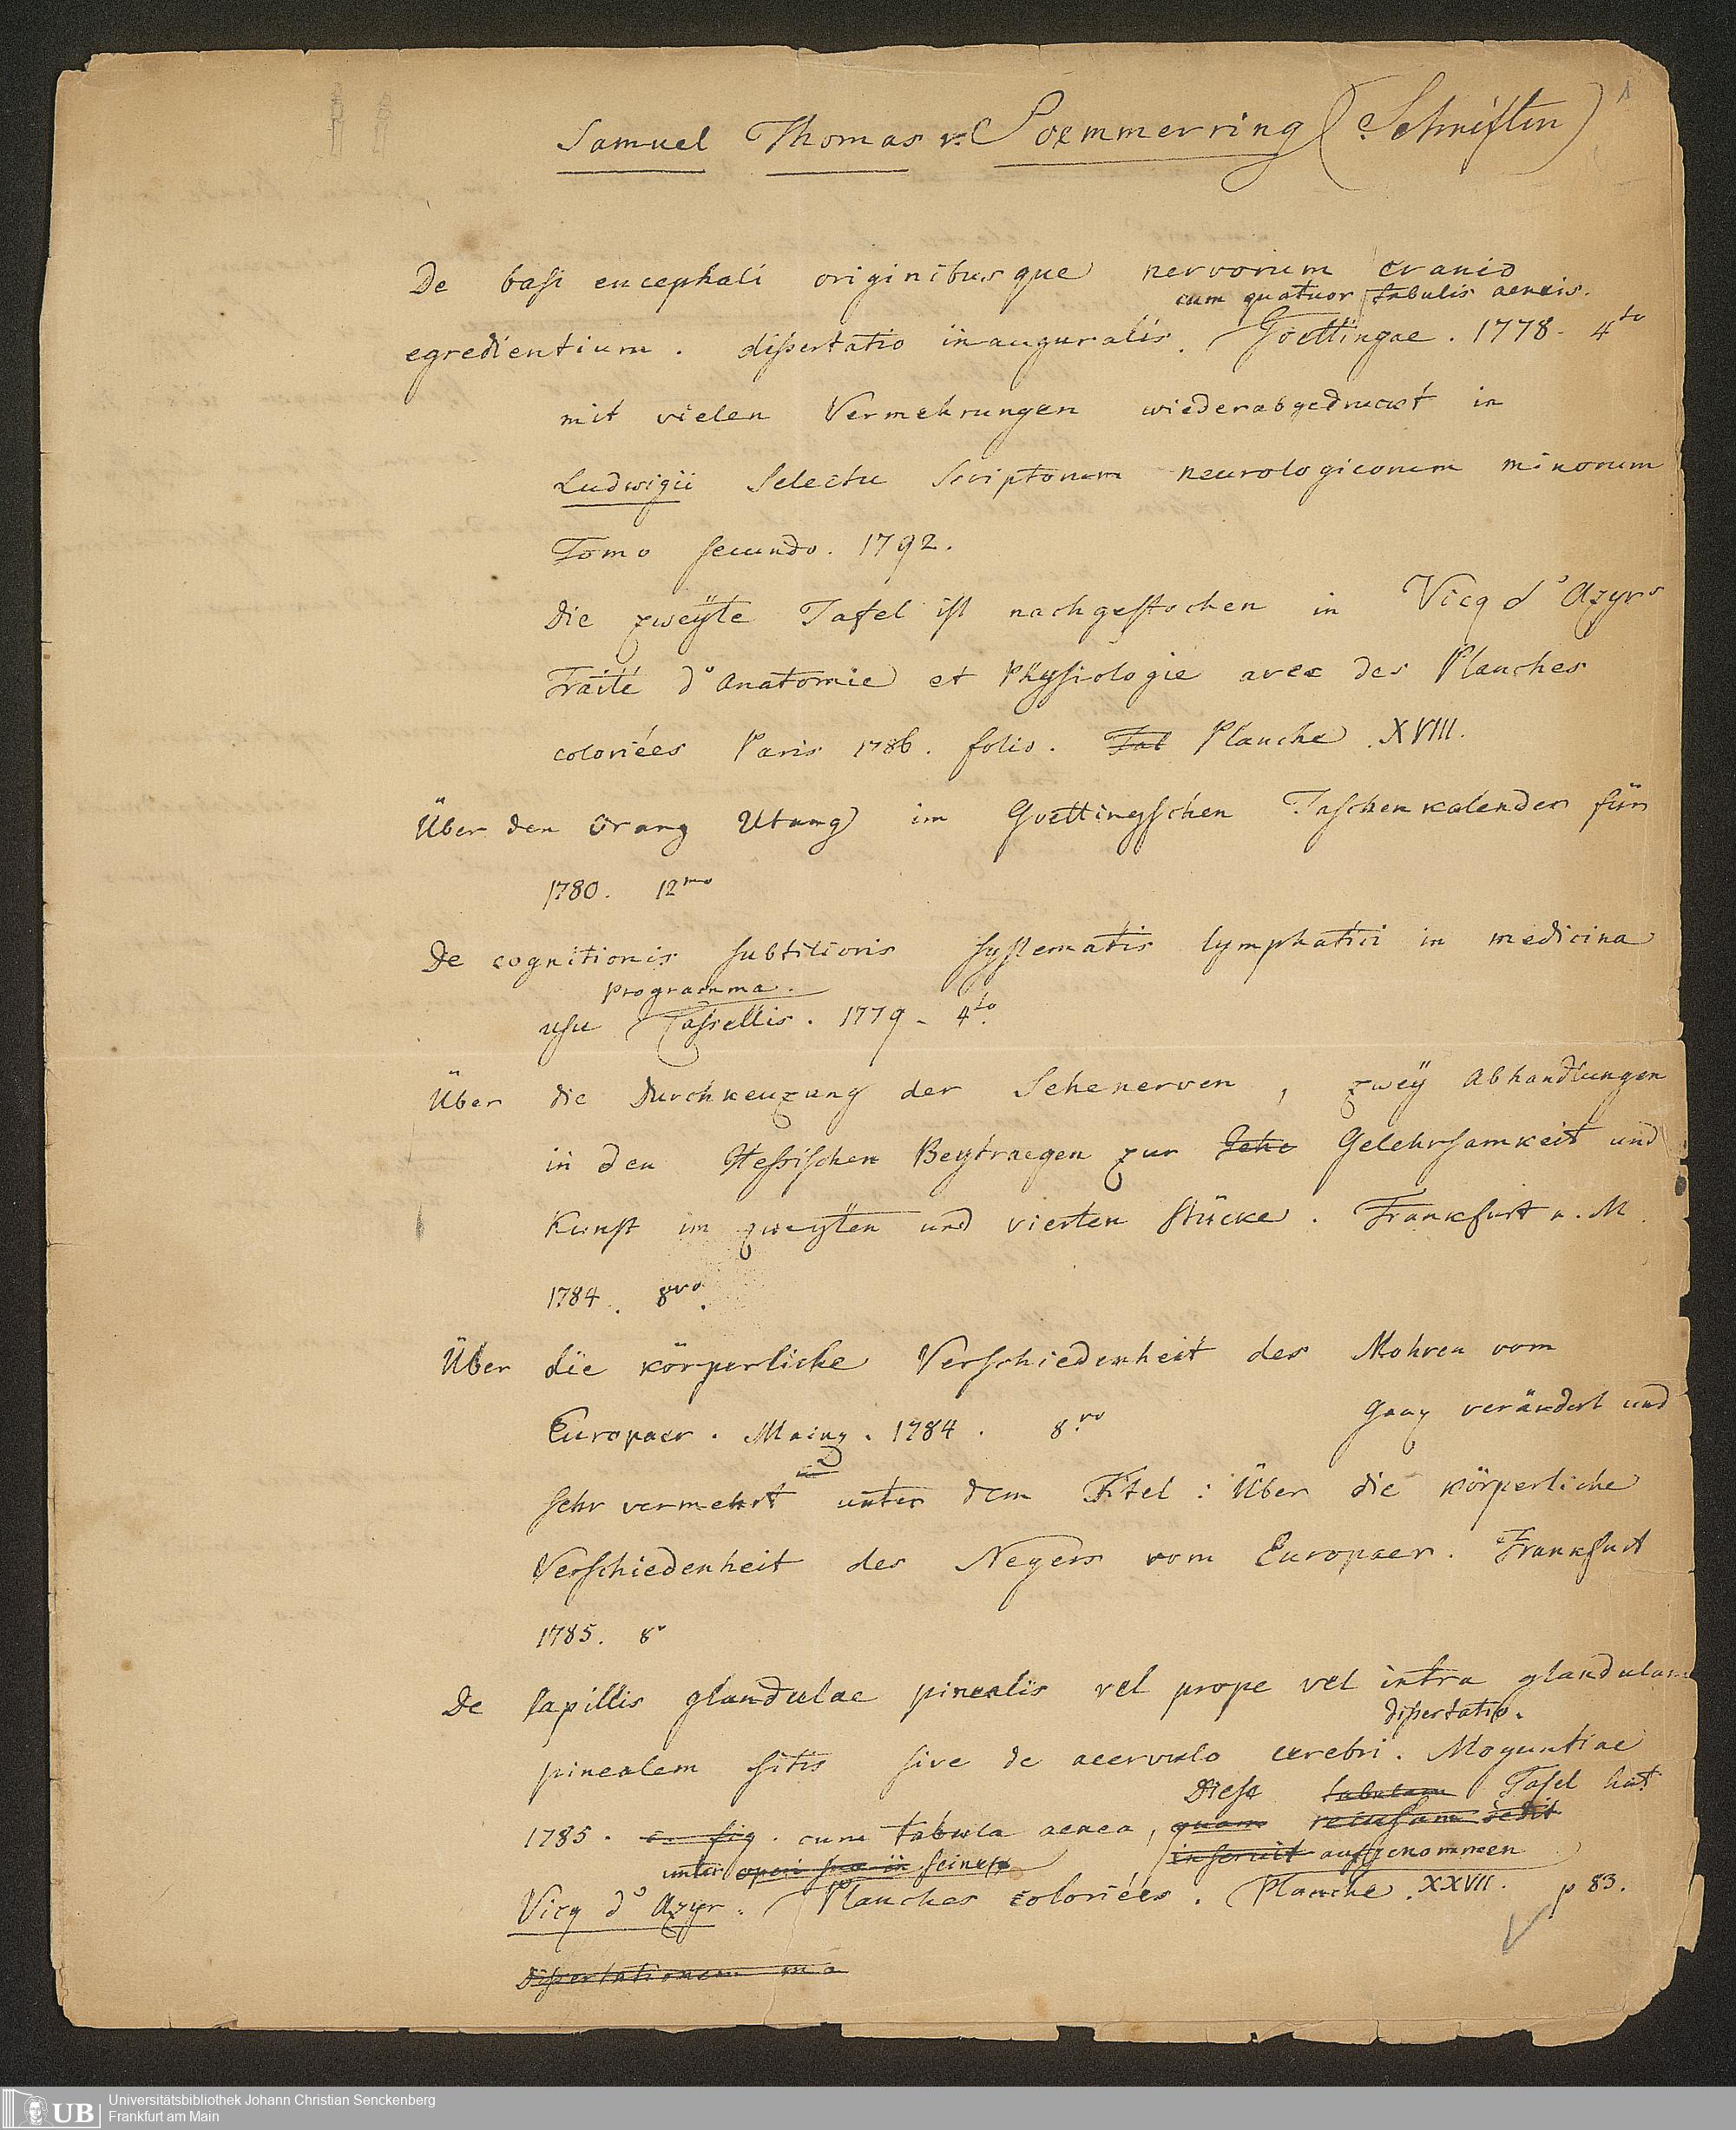 1
Samuel Thomas v. Soemmerring (Schriften)
De basi encephali originibusque nervorum cranio
cum quatuor tabulis aeneis.
egredientium. dissertatio inauguralis. Goettingae. 1778. 4to
mit vielen Vermehrungen wiederabgedruckt in
Ludwigii Selectu Scriptorum neurologicorum minorum
Tomo secundo. 1792.
Die zweyte Tafel ist nachgestochen in Vicq d'Azyrs
Traité d'Anatomie et Physiologie avec des Planches
coloriées Paris 1786. folio. Tab Planche. XVIII.
Über den Orang Utang im Goettingschen Taschenkalender für
1780. 12mo
De cognitionis subtilioris systematis lymphatici in medicina
programma.
usu Cassellis. 1779. 4to.
Über die Durchkeuzung der Sehenerven, zwey Abhandlungen
in den Hessischen Beytraegen zur Gehe Gelehrsamkeit und
Kunst im zweyten und vierten Stücke. Frankfurt a. M.
1784. 8vo.
Über die körperliche Verschiedenheit des Mohren vom
Europaer. Mainz. 1784. 8.vo Ganz verändert und
sehr vermehrt unter dem Titel: Über die körperliche
Verschiedenheit des Negers vom Europaer. Frankfurt
1785. 8v
De lapillis glandulae pinealis vel prope vel intra glandulam
dissertatio.
pinealem sitis sive de acervulo cerebri. Moguntiae
Diese tabulam Tafel hat
1785. c. fig. cum tabula aenea, quam recusam dedit
unter operi suo in seinen inseruit aufgenommen
Vicq d'Azyr. Planches coloriées. Planche. XXVII. p 83.
Dissertationem
UB
Universitätsbibliothek Johann Christian Senckenberg
Frankfurt am Main